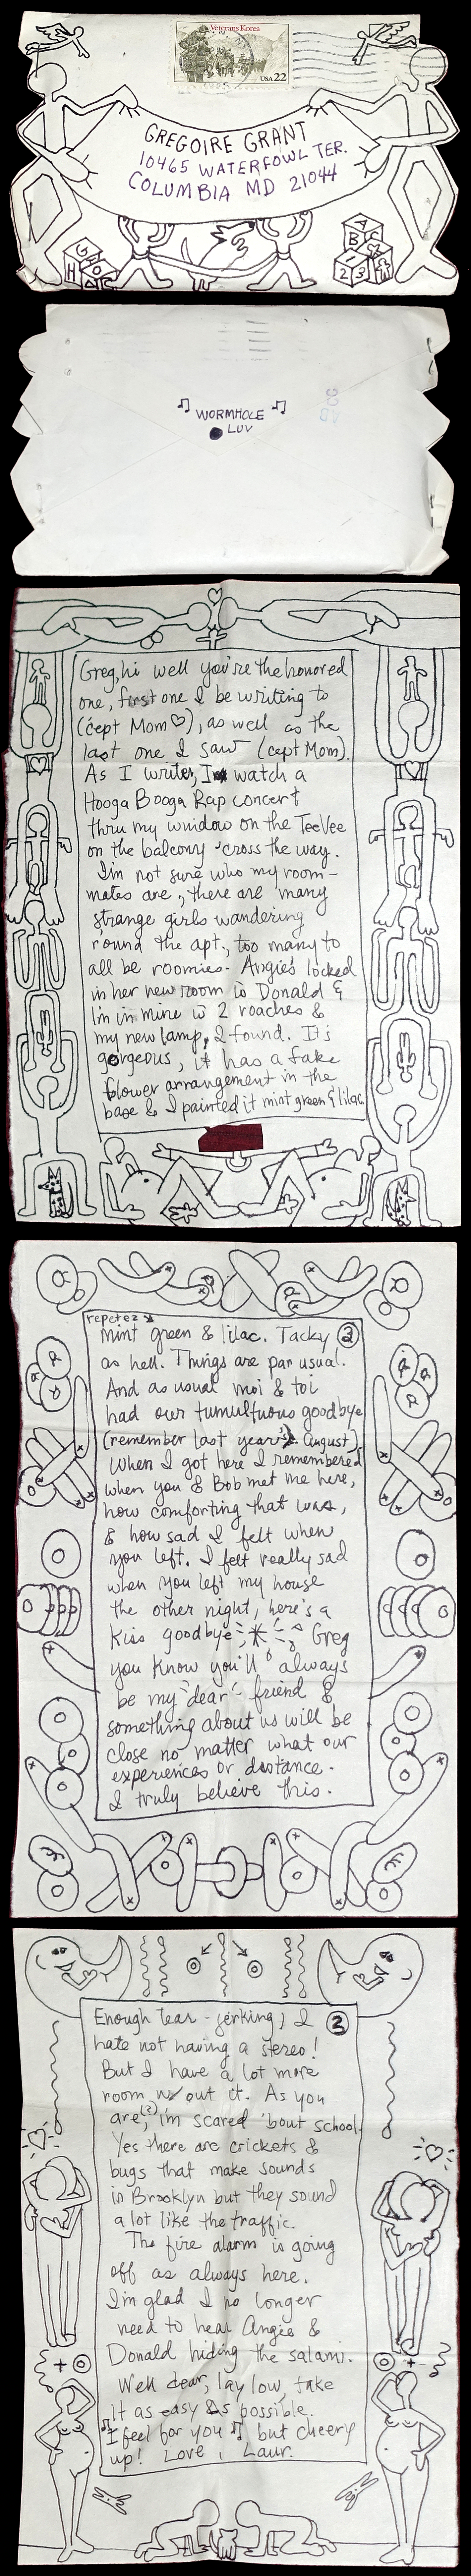 Veterans Korea
USA 22
GREGOIRE GRANT
10465 WATERFOWL TER.
COLUMBIA MD 21044
G
H
A
B C
1 2 3
WORMHOLE
LUV
Greg, hi well you're the honored
one, first one I be writing to
(cept Mom ♡), as well as the
last one I saw (cept Mom).
As I write, I watch a
Hooga Booga Rap concert
thru my window on the TeeVee
on the balcony 'cross the way.
I'm not sure who my room-
mates are, there are many
strange girls wandering
round the apt., too many to
all be roomies. Angie's locked
in her new room w Donald &
I'm in mine w 2 roaches &
my new lamp, I found. It's
gorgeous, it has a fake
flower arrangement in the
base & I painted it mint green & lilac
repetez
mint green & lilac. Tacky ②
as hell. Things are par usual.
And as usual moi & toi
had our tumultuous goodbye
(remember last year's August).
When I got here I remembered
when you & Bob met me here,
how comforting that was,
& how sad I felt when
you left. I felt really sad
when you left my house
the other night, here's a
kiss goodbye Greg
you know you'll always
be my "dear" friend &
something about us will be
close no matter what our
experiences or distance.
I truly believe this.
Enough tear-jerking, I ③
hate not having a stereo!
But I have a lot more
room w/out it. As you
are(?), i'm scared 'bout school.
Yes there are crickets &
bugs that make sounds
in Brooklyn but they sound
a lot like the traffic.
The fire alarm is going
off as always here.
I'm glad I no longer
need to hear Angie &
Donald hiding the salami.
Well dear, lay low, take
it as easy as possible.
♫ I feel for you ♫, but cheery
up! Love, Laur.